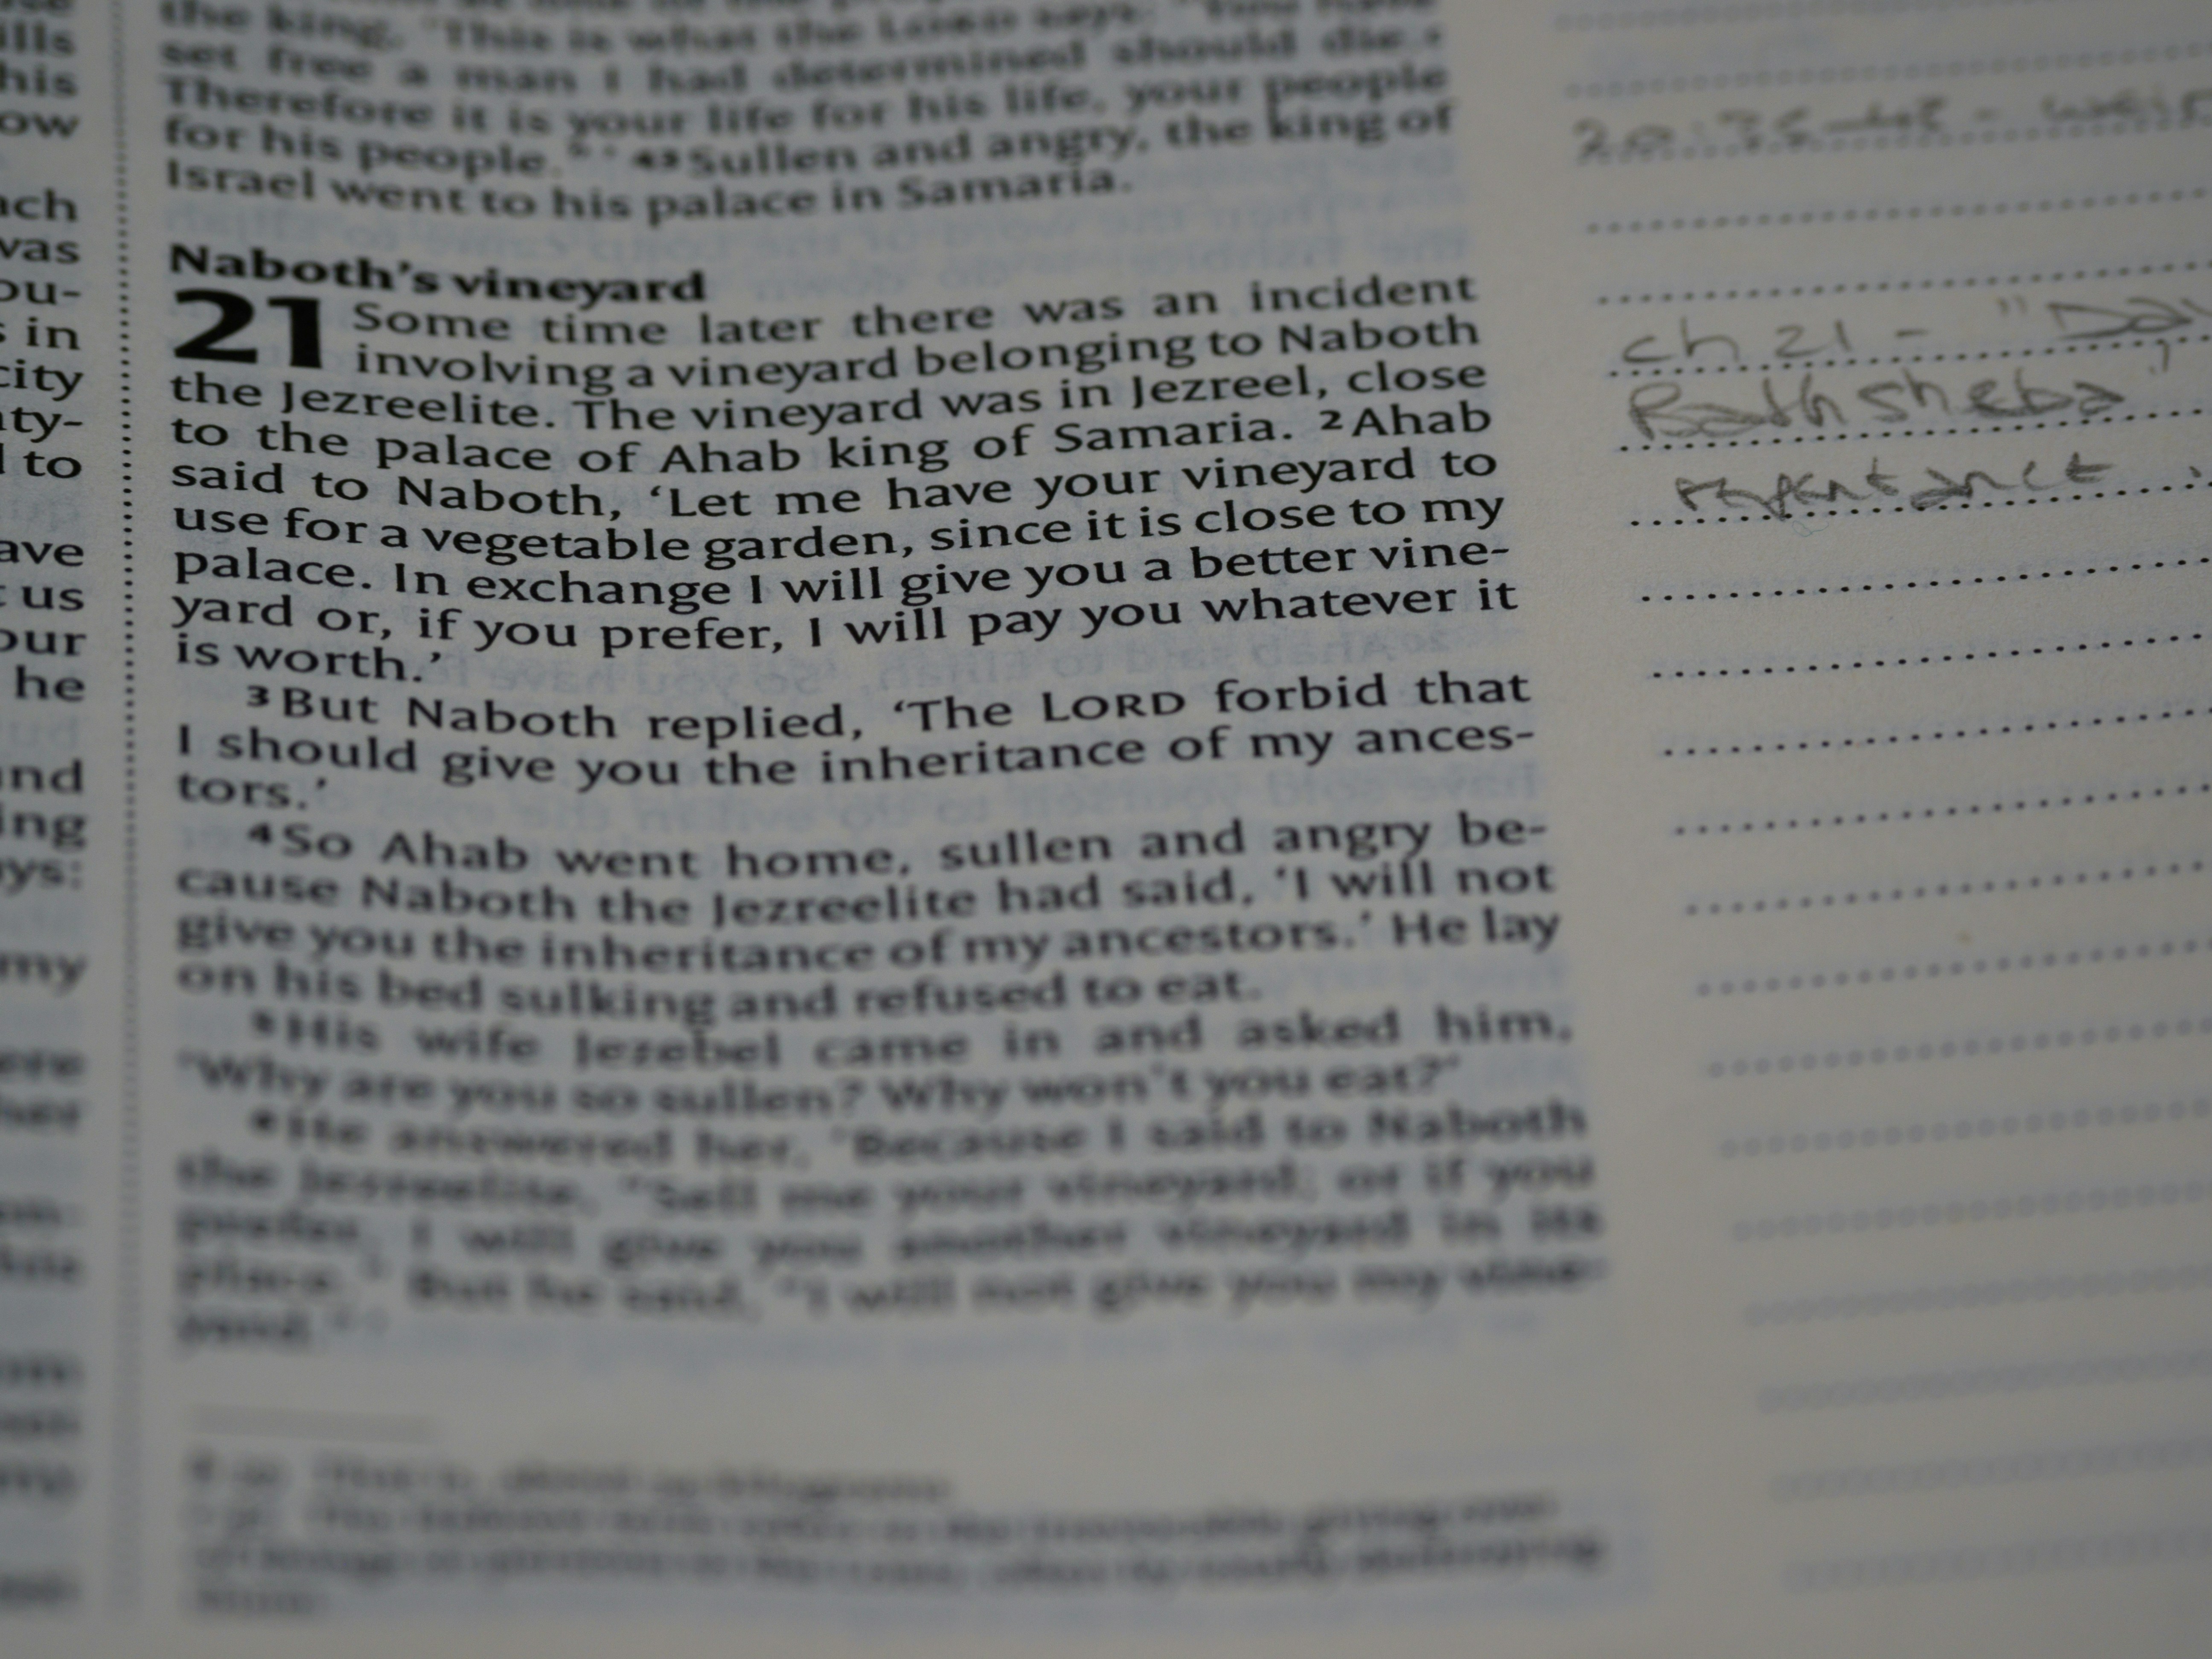 ills
his
ow
ach
was
ou-
s in
city
nty-
l to
ave
t us
our
he
and
ing
ays:
my
ere
her
the king, 'This is what the LORD says: "You have
set free a man I had determined should die.
Therefore it is your life for his life, your people
for his people." ' 43 Sullen and angry, the king of
Israel went to his palace in Samaria.
Naboth's vineyard
21 Some time later there was an incident
involving a vineyard belonging to Naboth
the Jezreelite. The vineyard was in Jezreel, close
to the palace of Ahab king of Samaria. 2 Ahab
said to Naboth, 'Let me have your vineyard to
use for a vegetable garden, since it is close to my
palace. In exchange I will give you a better vine-
yard or, if you prefer, I will pay you whatever it
is worth.'
3 But Naboth replied, 'The LORD forbid that
I should give you the inheritance of my ances-
tors.'
4 So Ahab went home, sullen and angry be-
cause Naboth the Jezreelite had said, 'I will not
give you the inheritance of my ancestors.' He lay
on his bed sulking and refused to eat.
5 His wife Jezebel came in and asked him,
'Why are you so sullen? Why won't you eat?'
6 He answered her, 'Because I said to Naboth
the Jezreelite, "Sell me your vineyard; or if you
prefer, I will give you another vineyard in its
place." But he said, "I will not give you my vine-
yard." '
ch 21 -
Bathsheba"
repentance